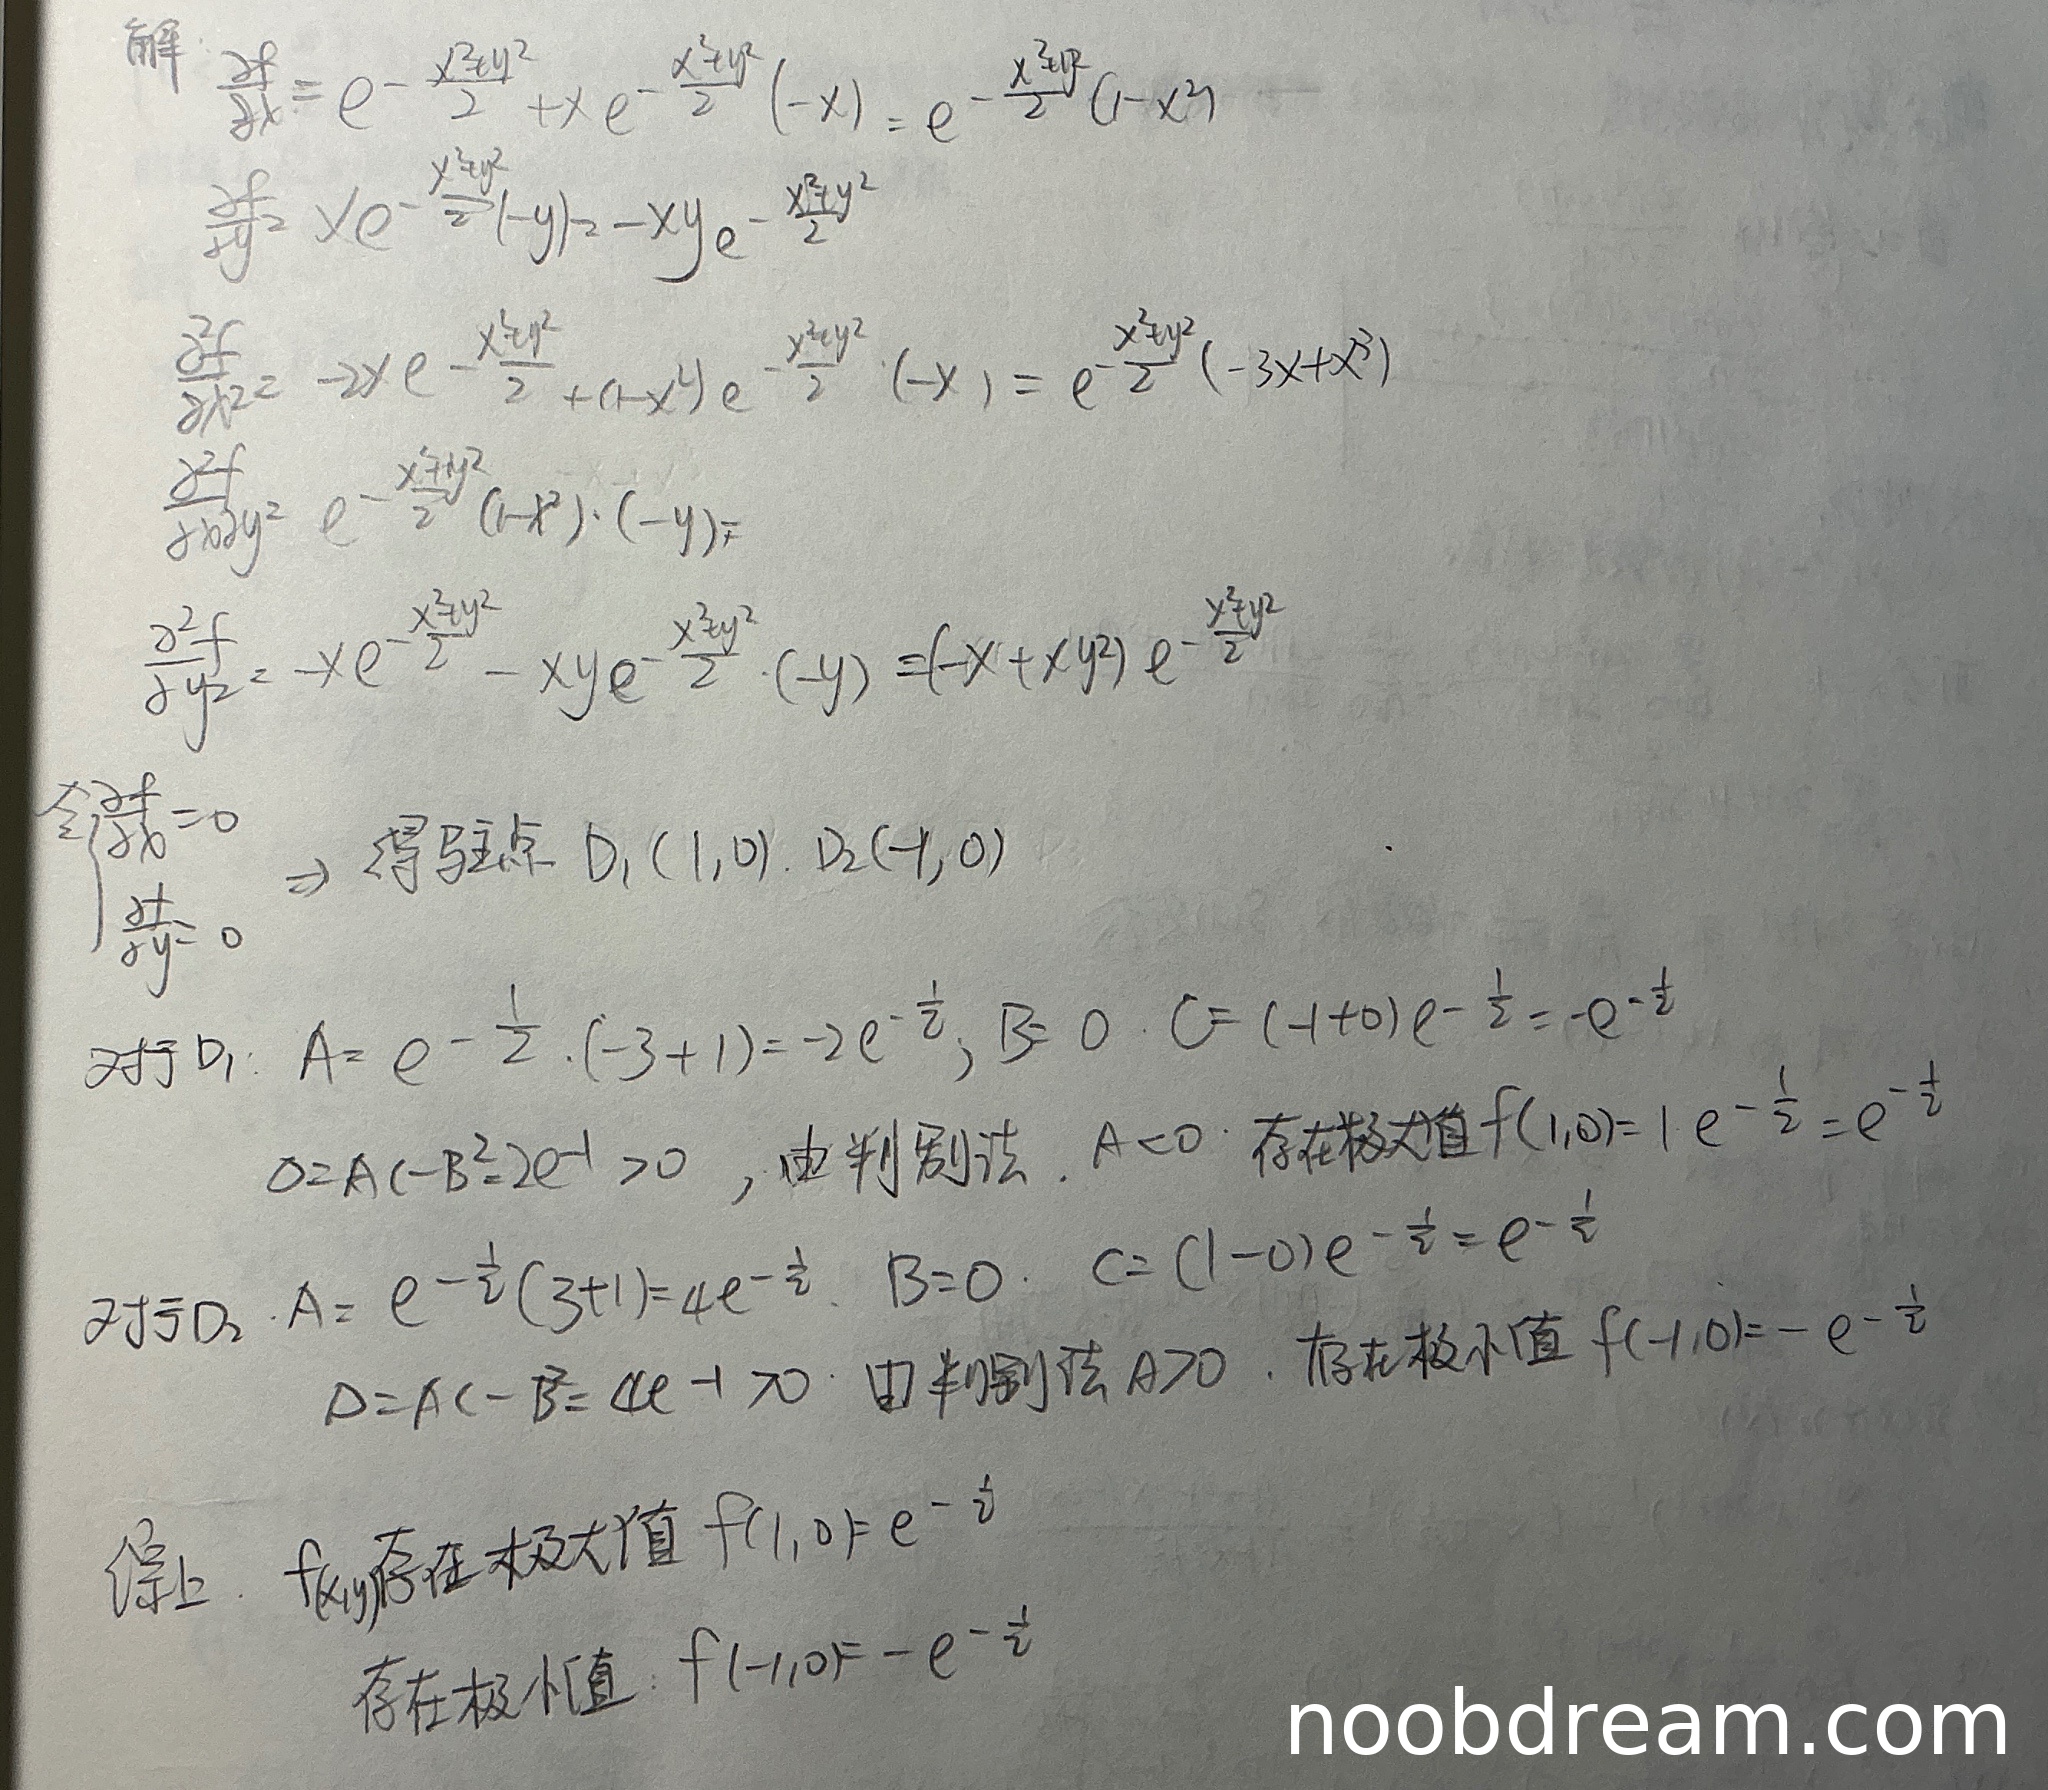 解: ∂f/∂x = e^{-(x²+y²)/2} + x e^{-(x²+y²)/2} (-x) = e^{-(x²+y²)/2} (1-x²)
∂f/∂y = x e^{-(x²+y²)/2} (-y) = -xy e^{-(x²+y²)/2}
∂²f/∂x² = -2x e^{-(x²+y²)/2} + (1-x²) e^{-(x²+y²)/2} · (-x) = e^{-(x²+y²)/2} (-3x+x³)
∂²f/∂x∂y = e^{-(x²+y²)/2} (1-x²) · (-y) =
∂²f/∂y² = -x e^{-(x²+y²)/2} - xy e^{-(x²+y²)/2} · (-y) = (-x+xy²) e^{-(x²+y²)/2}
令 { ∂f/∂x = 0
⇒ 得驻点 D₁(1,0). D₂(-1,0)
∂f/∂y = 0
对于D₁. A = e^{-1/2} · (-3+1) = -2e^{-1/2}, B = 0. C = (-1+0) e^{-1/2} = -e^{-1/2}
D = AC-B² = 2e^{-1} > 0, 由判别法. A<0. 存在极大值 f(1,0) = 1·e^{-1/2} = e^{-1/2}
对于D₂. A = e^{-1/2} (3+1) = 4e^{-1/2}. B = 0. C = (1-0) e^{-1/2} = e^{-1/2}
D = AC-B² = 4e^{-1} > 0. 由判别法 A>0. 存在极小值 f(-1,0) = -e^{-1/2}
综上. f(x,y)存在极大值 f(1,0) = e^{-1/2}
存在极小值. f(-1,0) = -e^{-1/2}
noobdream.com